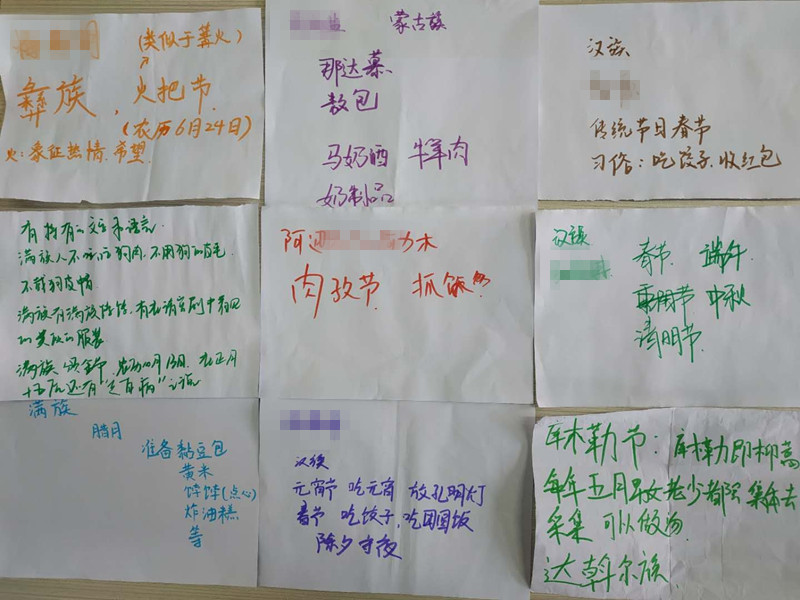 (类似于篝火)
彝族，火把节
(农历6月24日)
火:象征热情.希望
蒙古族
那达慕
敖包
马奶酒 牛羊肉
奶制品
汉族
传统节日春节
习俗:吃饺子.收红包
有拥有的文字和语言
满族人不吃狗肉.不用狗的皮毛
不戴狗皮帽
满族 颁金节.农历10月13日.在正月
十五后还有"走百病"之说
阿 力木
肉孜节. 抓饭
汉族
春节 端午
重阳节 中秋
清明节
满族
腊月
准备黏豆包
黄米
饽饽(点心)
炸油糕
等
汉族
元宵节 吃元宵 放孔明灯
春节 吃饺子.吃团圆饭
除夕守夜
库木勒节:库木勒即柳蒿
每年五月男女老少都 集体去
采集 可以做汤
达斡尔族